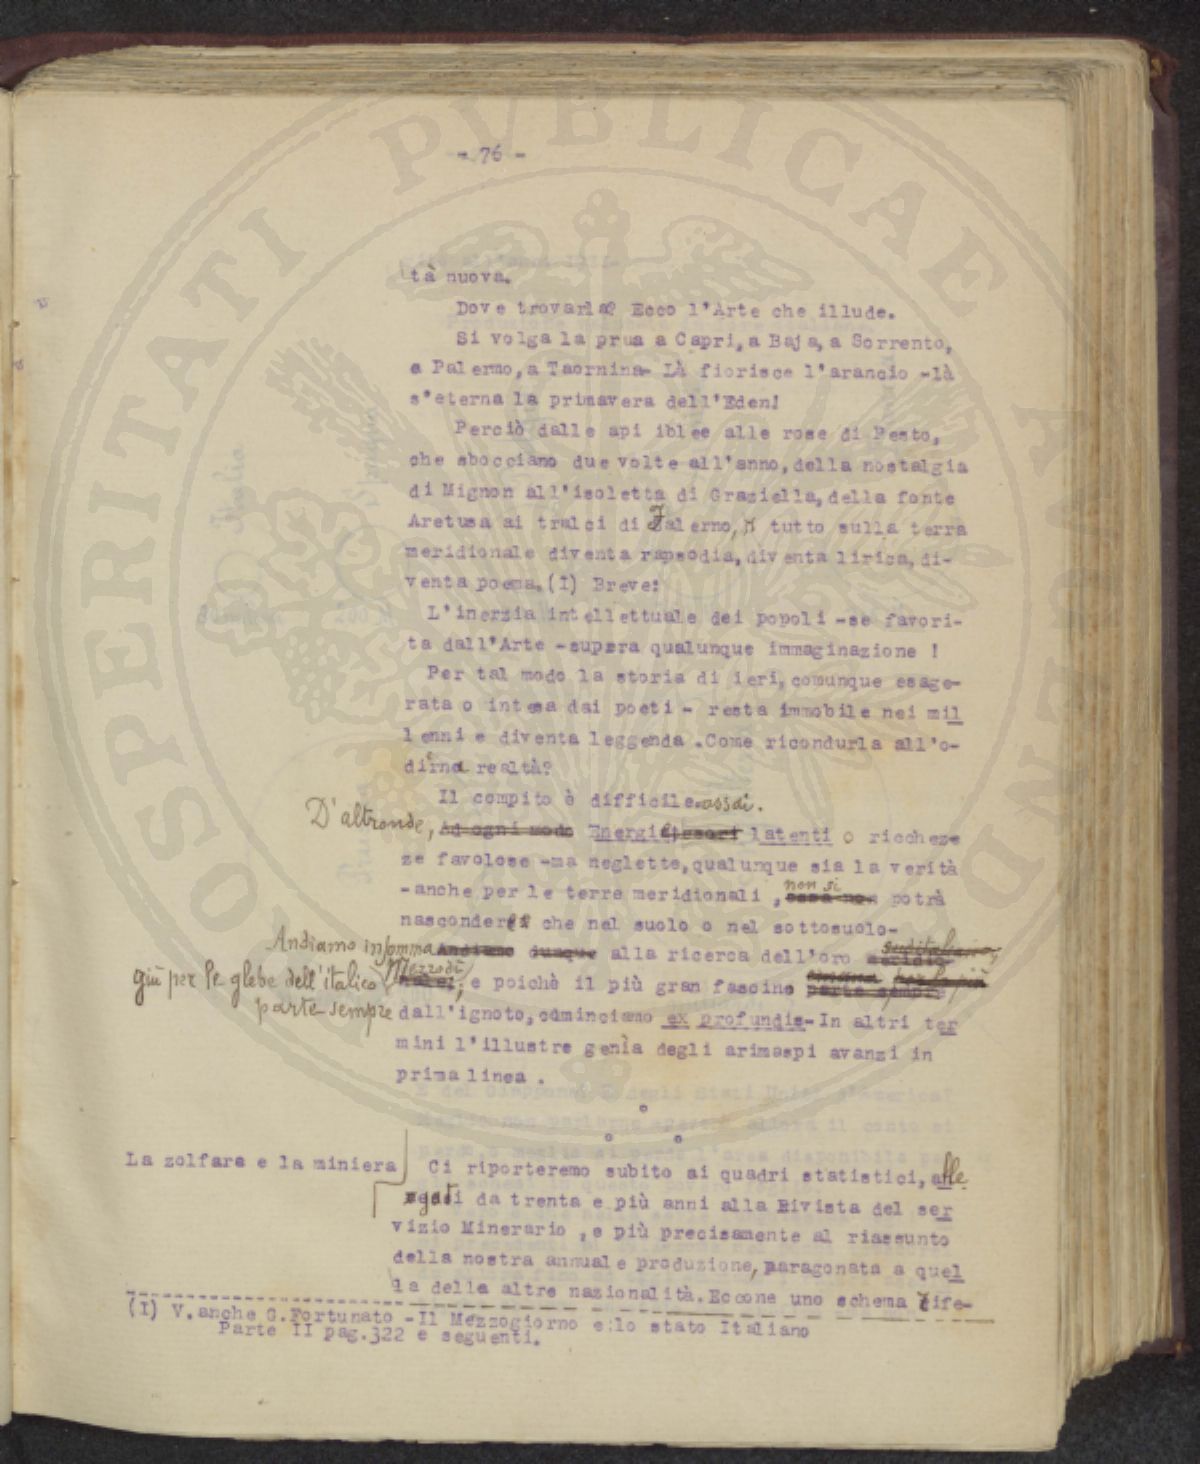 - 76 -
tà nuova.
Dove trovarla? Ecco l'Arte che illude.
Si volga la prua a Capri, a Baja, a Sorrento,
a Palermo, a Taormina- Là fiorisce l'arancio -là
s'eterna la primavera dell'Eden!
Perciò dalle api iblee alle rose di Pesto,
che sbocciano due volte all'anno, della nostalgia
di Mignon all'isoletta di Graziella, della fonte
Aretusa ai tralci di Falerno, tutto sulla terra
meridionale diventa rapsodia, diventa lirica, di-
venta poema. (I) Breve:
L'inerzia intellettuale dei popoli -se favori-
ta dall'Arte -supera qualunque immaginazione !
Per tal modo la storia di ieri, comunque esage-
rata o intesa dai poeti - resta immobile nei mil
lenni e diventa leggenda .Come ricondurla all'o-
dierna realtà?
Il compito è difficile assai.
D'altronde, Ad ogni modo Energie tesori latenti o ricchez-
ze favolose -ma neglette, qualunque sia la verità
-anche per le terre meridionali , non si potrà
nascondere che nel suolo o nel sottosuolo-
Andiamo insomma Andiamo dunque alla ricerca dell'oro
giù per le glebe dell'italico Mezzodì, e poichè il più gran fascino parte sempre
parte sempre dall'ignoto, cominciamo ex profundis- In altri ter
mini l'illustre genìa degli arimaspi avanzi in
prima linea .
La zolfara e la miniera Ci riporteremo subito ai quadri statistici, alle
gati da trenta e più anni alla Rivista del ser
vizio Minerario , e più precisamente al riassunto
della nostra annuale produzione, paragonata a quel
la delle altre nazionalità. Eccone uno schema rife-
(I) V. anche G. Fortunato -Il Mezzogiorno e lo stato Italiano
Parte II pag. 322 e seguenti.
PROSPERITATI PUBLICAE AUGENDAE